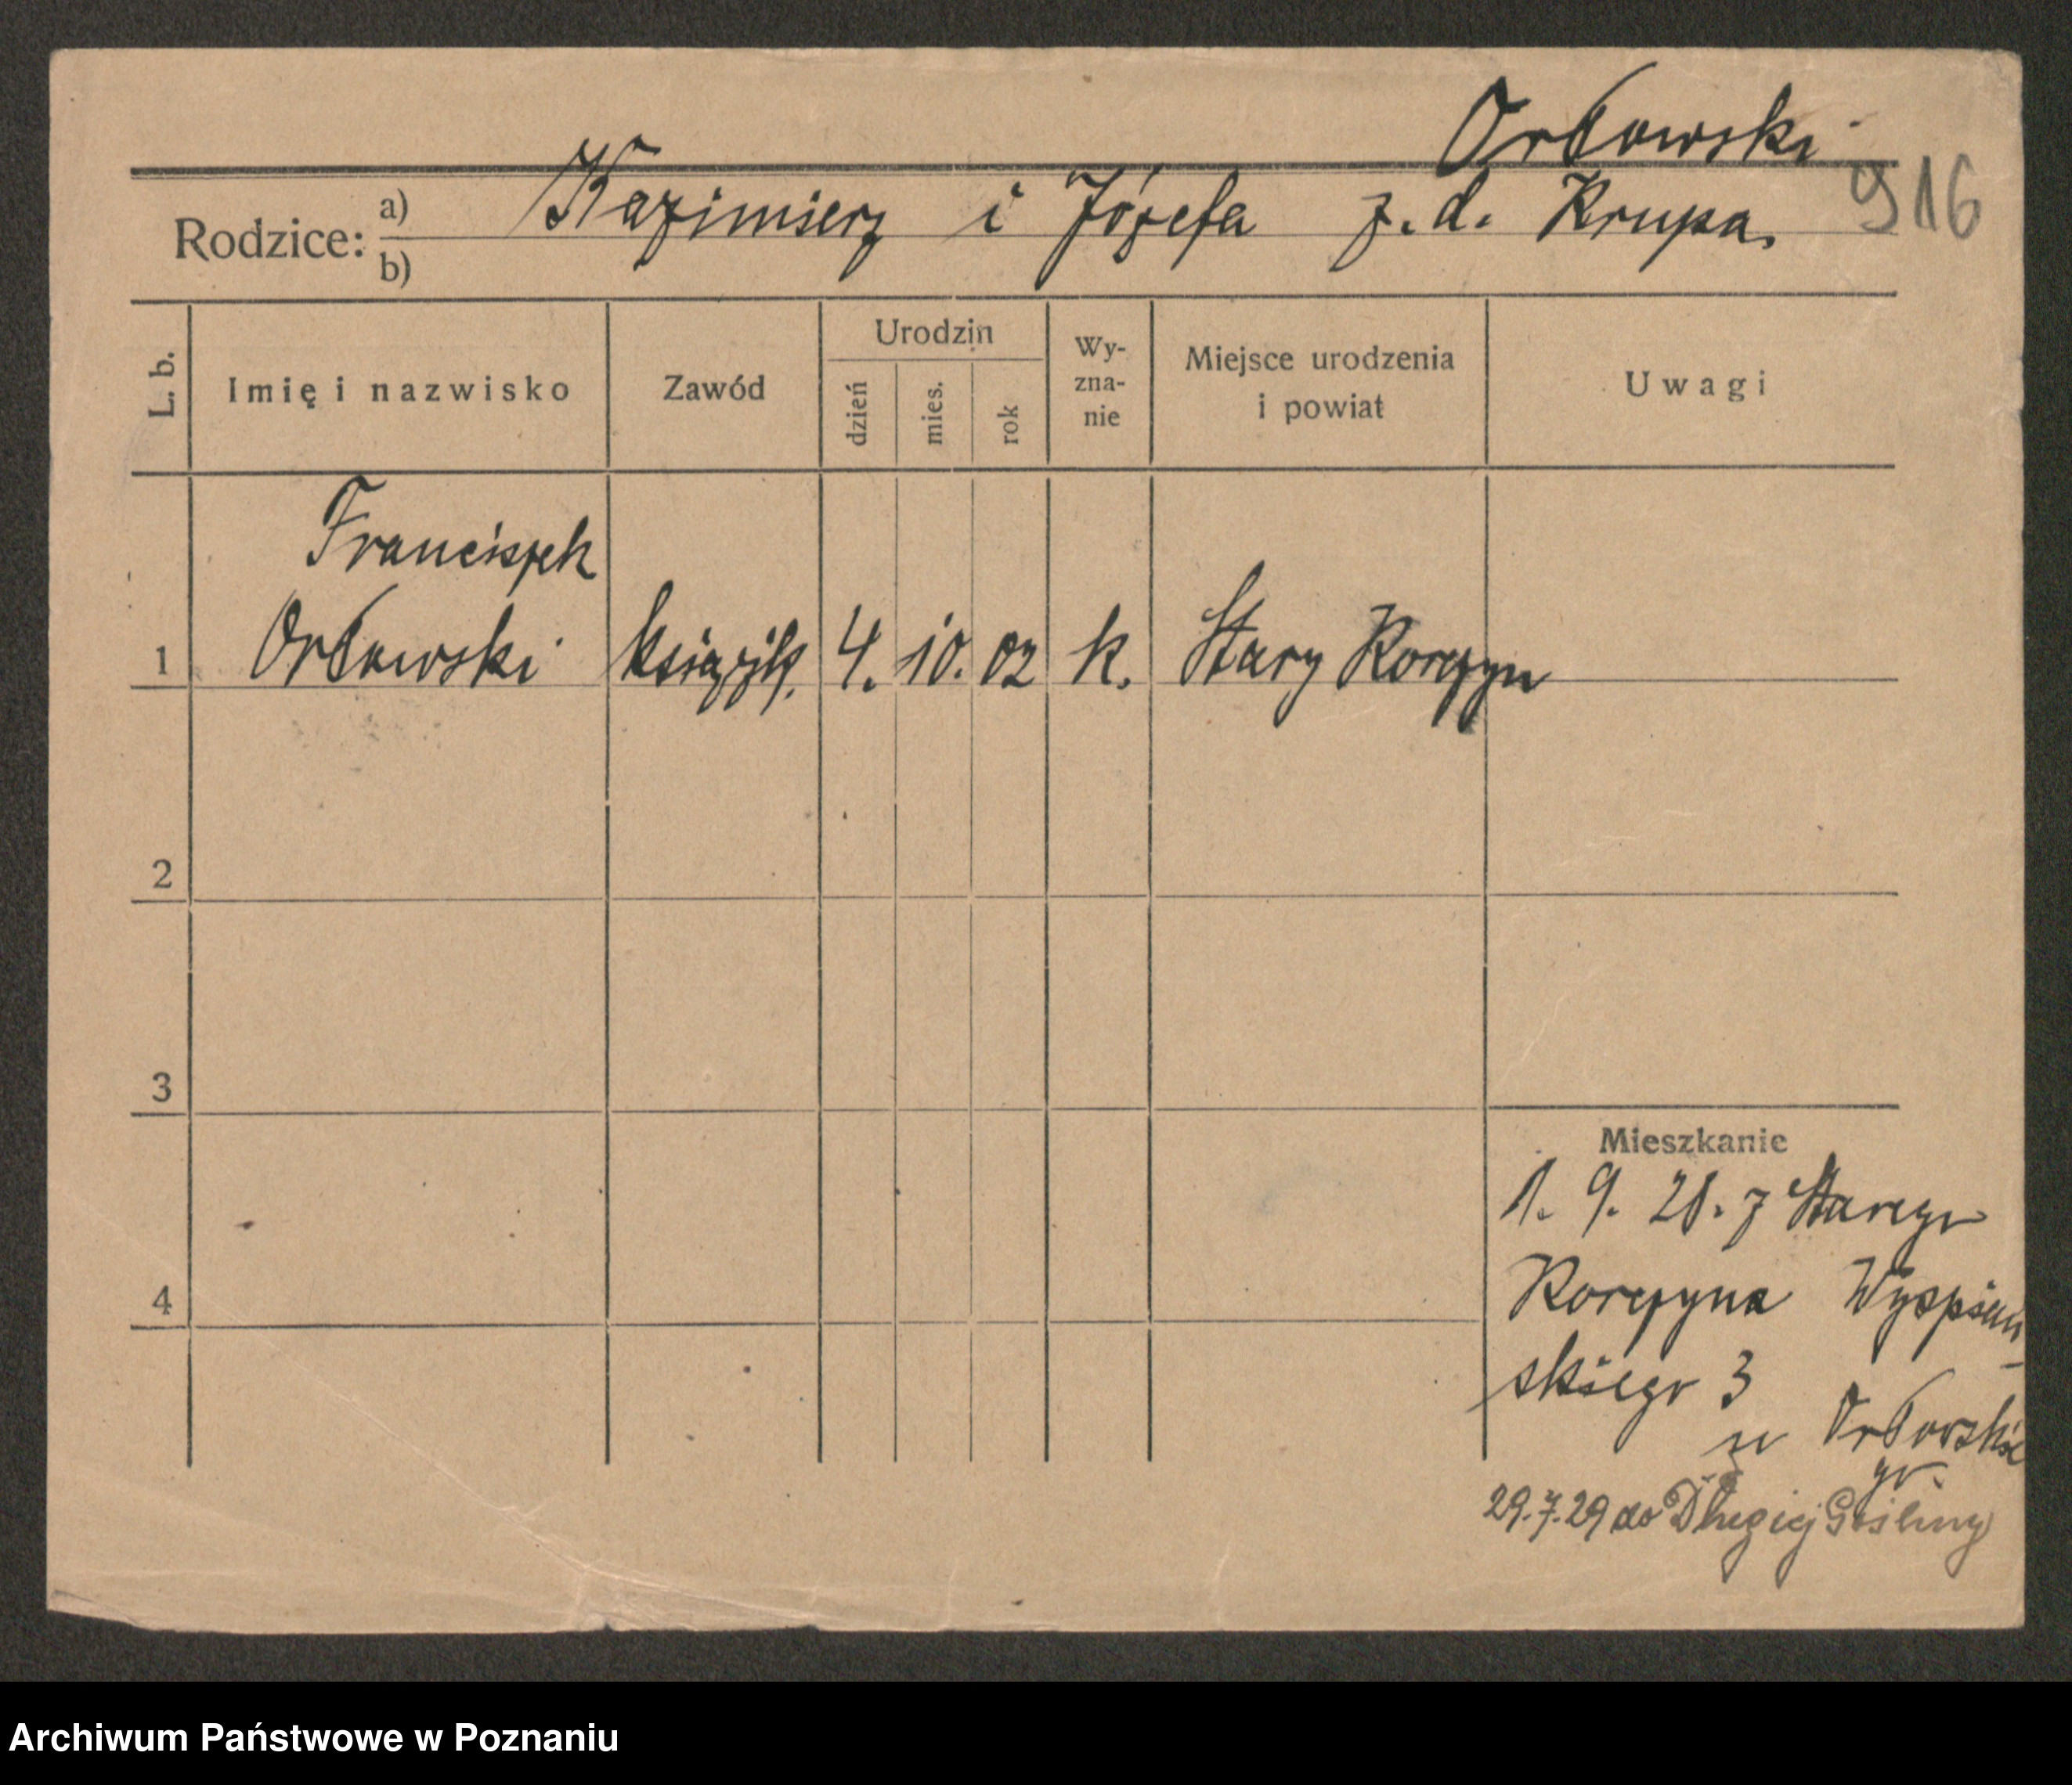 Orłowski
916
Rodzice: a) Kazimierz i Józefa z. d. Krupa.
b)
L. b. Imię i nazwisko Zawód Urodzin dzień mies. rok Wy-zna-nie Miejsce urodzenia i powiat Uwagi
Franciszek
1 Orłowski 4. 10. 02 k. Stary Korczyn
2
3
Mieszkanie
1. 9. 28. z Starego
4 Korczyna Wyspiań-
skiego 3
u Orłowskie
go.
29.7.29 do Długiej Gośliny
Archiwum Państwowe w Poznaniu